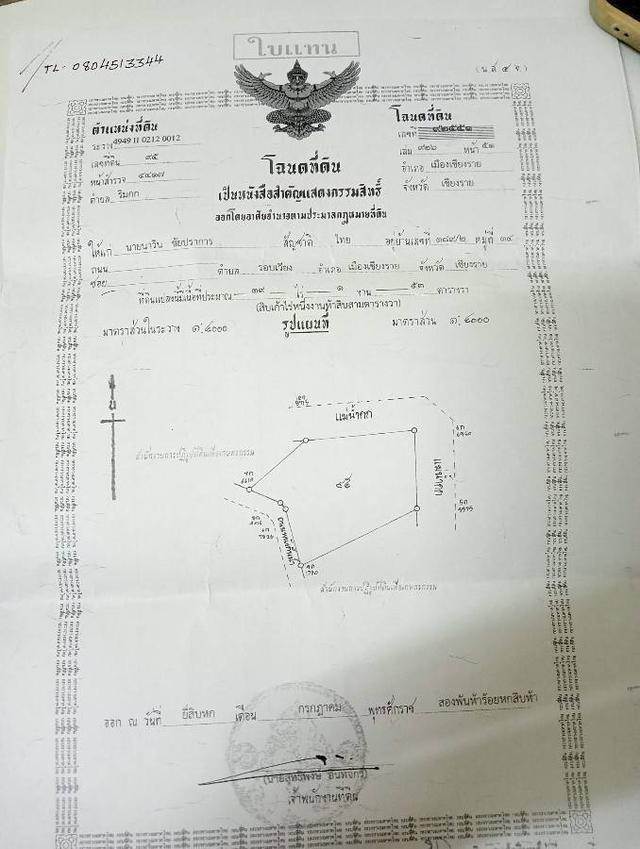 TL. 0804513344
ใบแทน
(น.ส. ๔ จ.)
ตำแหน่งที่ดิน
ระวาง 4949 II 0212 0012
เลขที่ดิน ๙๕
หน้าสำรวจ ๔๔๑๗
ตำบล ริมกก
โฉนดที่ดิน
เลขที่ ๑๒๕๕๑
เล่ม ๙๒๖ หน้า ๕๑
อำเภอ เมืองเชียงราย
จังหวัด เชียงราย
โฉนดที่ดิน
เป็นหนังสือสำคัญแสดงกรรมสิทธิ์
ออกโดยอาศัยอำนาจตามประมวลกฎหมายที่ดิน
ให้แก่ นายนาวิน ชัยปราการ สัญชาติ ไทย อยู่บ้านเลขที่ ๓๘๙/๒ หมู่ที่ ๑๔
ถนน
ซอย ตำบล รอบเวียง อำเภอ เมืองเชียงราย จังหวัด เชียงราย
ที่ดินแปลงนี้มีเนื้อที่ประมาณ ๑๙ ไร่ ๑ งาน ๕๓ ตารางวา
(สิบเก้าไร่หนึ่งงานห้าสิบสามตารางวา)
มาตราส่วนในระวาง ๑:๔๐๐๐ รูปแผนที่ มาตราส่วน ๑:๔๐๐๐
น
แม่น้ำกก
แม่น้ำกก
สำนักงานการปฏิรูปที่ดินเพื่อเกษตรกรรม
๙๕
สำนักงานการปฏิรูปที่ดินเพื่อเกษตรกรรม
ออก ณ วันที่ ยี่สิบหก เดือน กรกฎาคม พุทธศักราช สองพันห้าร้อยหกสิบห้า
เจ้าพนักงานที่ดิน